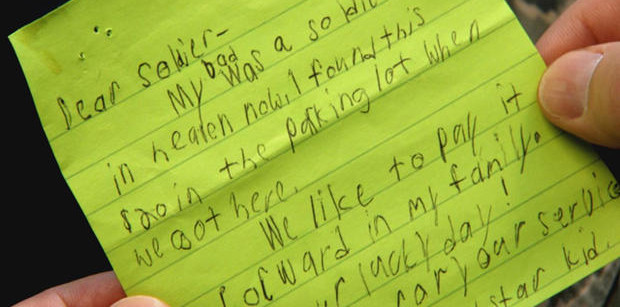 Dear soldier-
My dad was a soldie
in heaven now. I found this
$20 in the parking lot when
we got here.
We like to pay it
forward in my family.
ur lucky day!
for your servic
star kid.